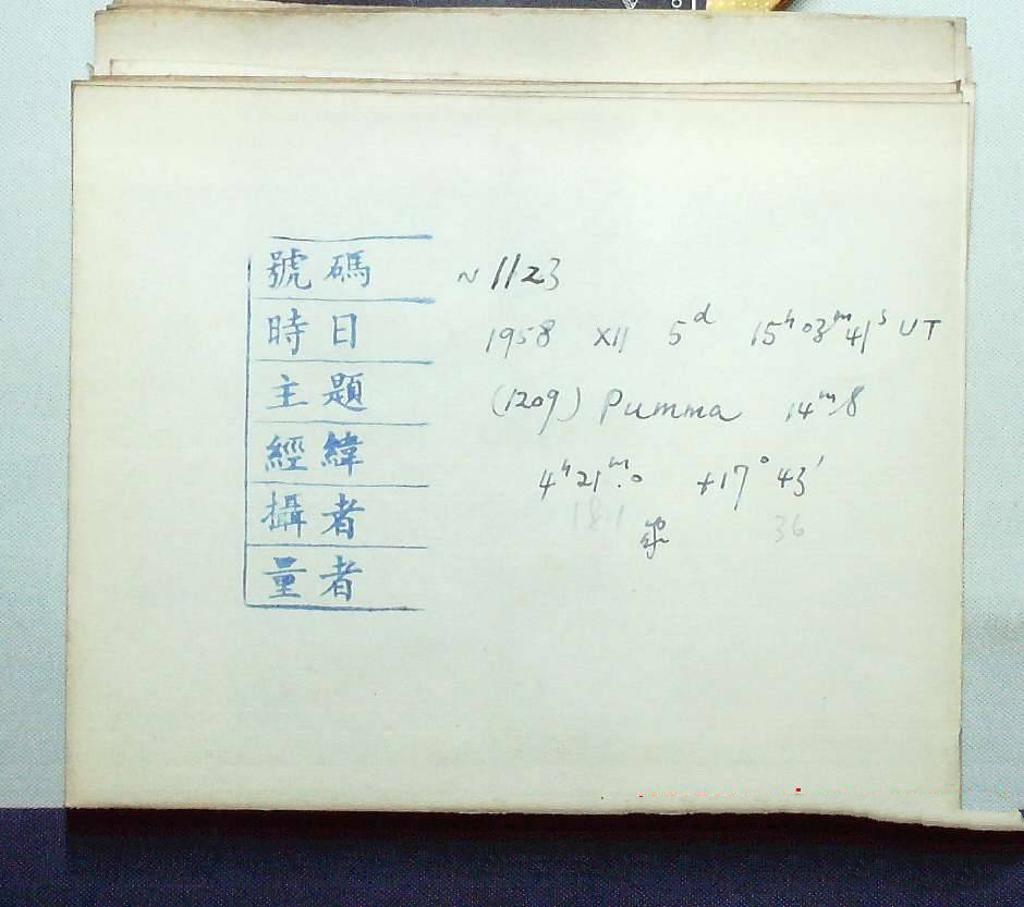 號碼 N 1123
時日 1958 XII 5ᵈ 15ʰ03ᵐ41ˢ UT
主題 (1209) Pumma 14ᵐ.8
經緯 4ʰ21ᵐ.0 +17°43′
18.1 36
攝者
量者